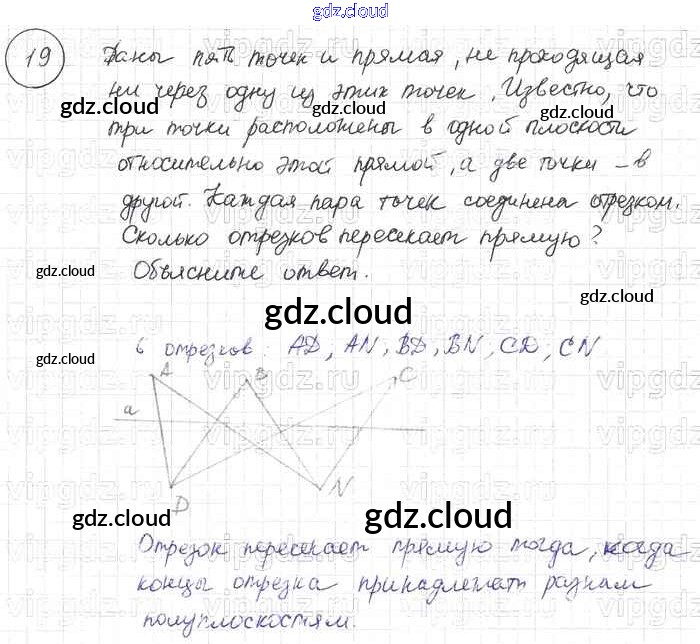 gdz.cloud
19 Даны пять точек и прямая, не проходящая
ни через одну из этих точек. Известно, что
gdz.cloud gdz.cloud
три точки расположены в одной плоскости
относительно этой прямой, а две точки – в
gdz.cloud
другой. Каждая пара точек соединена отрезком.
Сколько отрезков пересекает прямую?
Объясните ответ.
gdz.cloud
gdz.cloud
gdz.cloud
6 отрезков: AD, AN, BD, BN, CD, CN
gdz.cloud
A B C
a
D N
gdz.cloud
gdz.cloud
Отрезок пересекает прямую тогда, когда
концы отрезка принадлежат разным
полуплоскостям.